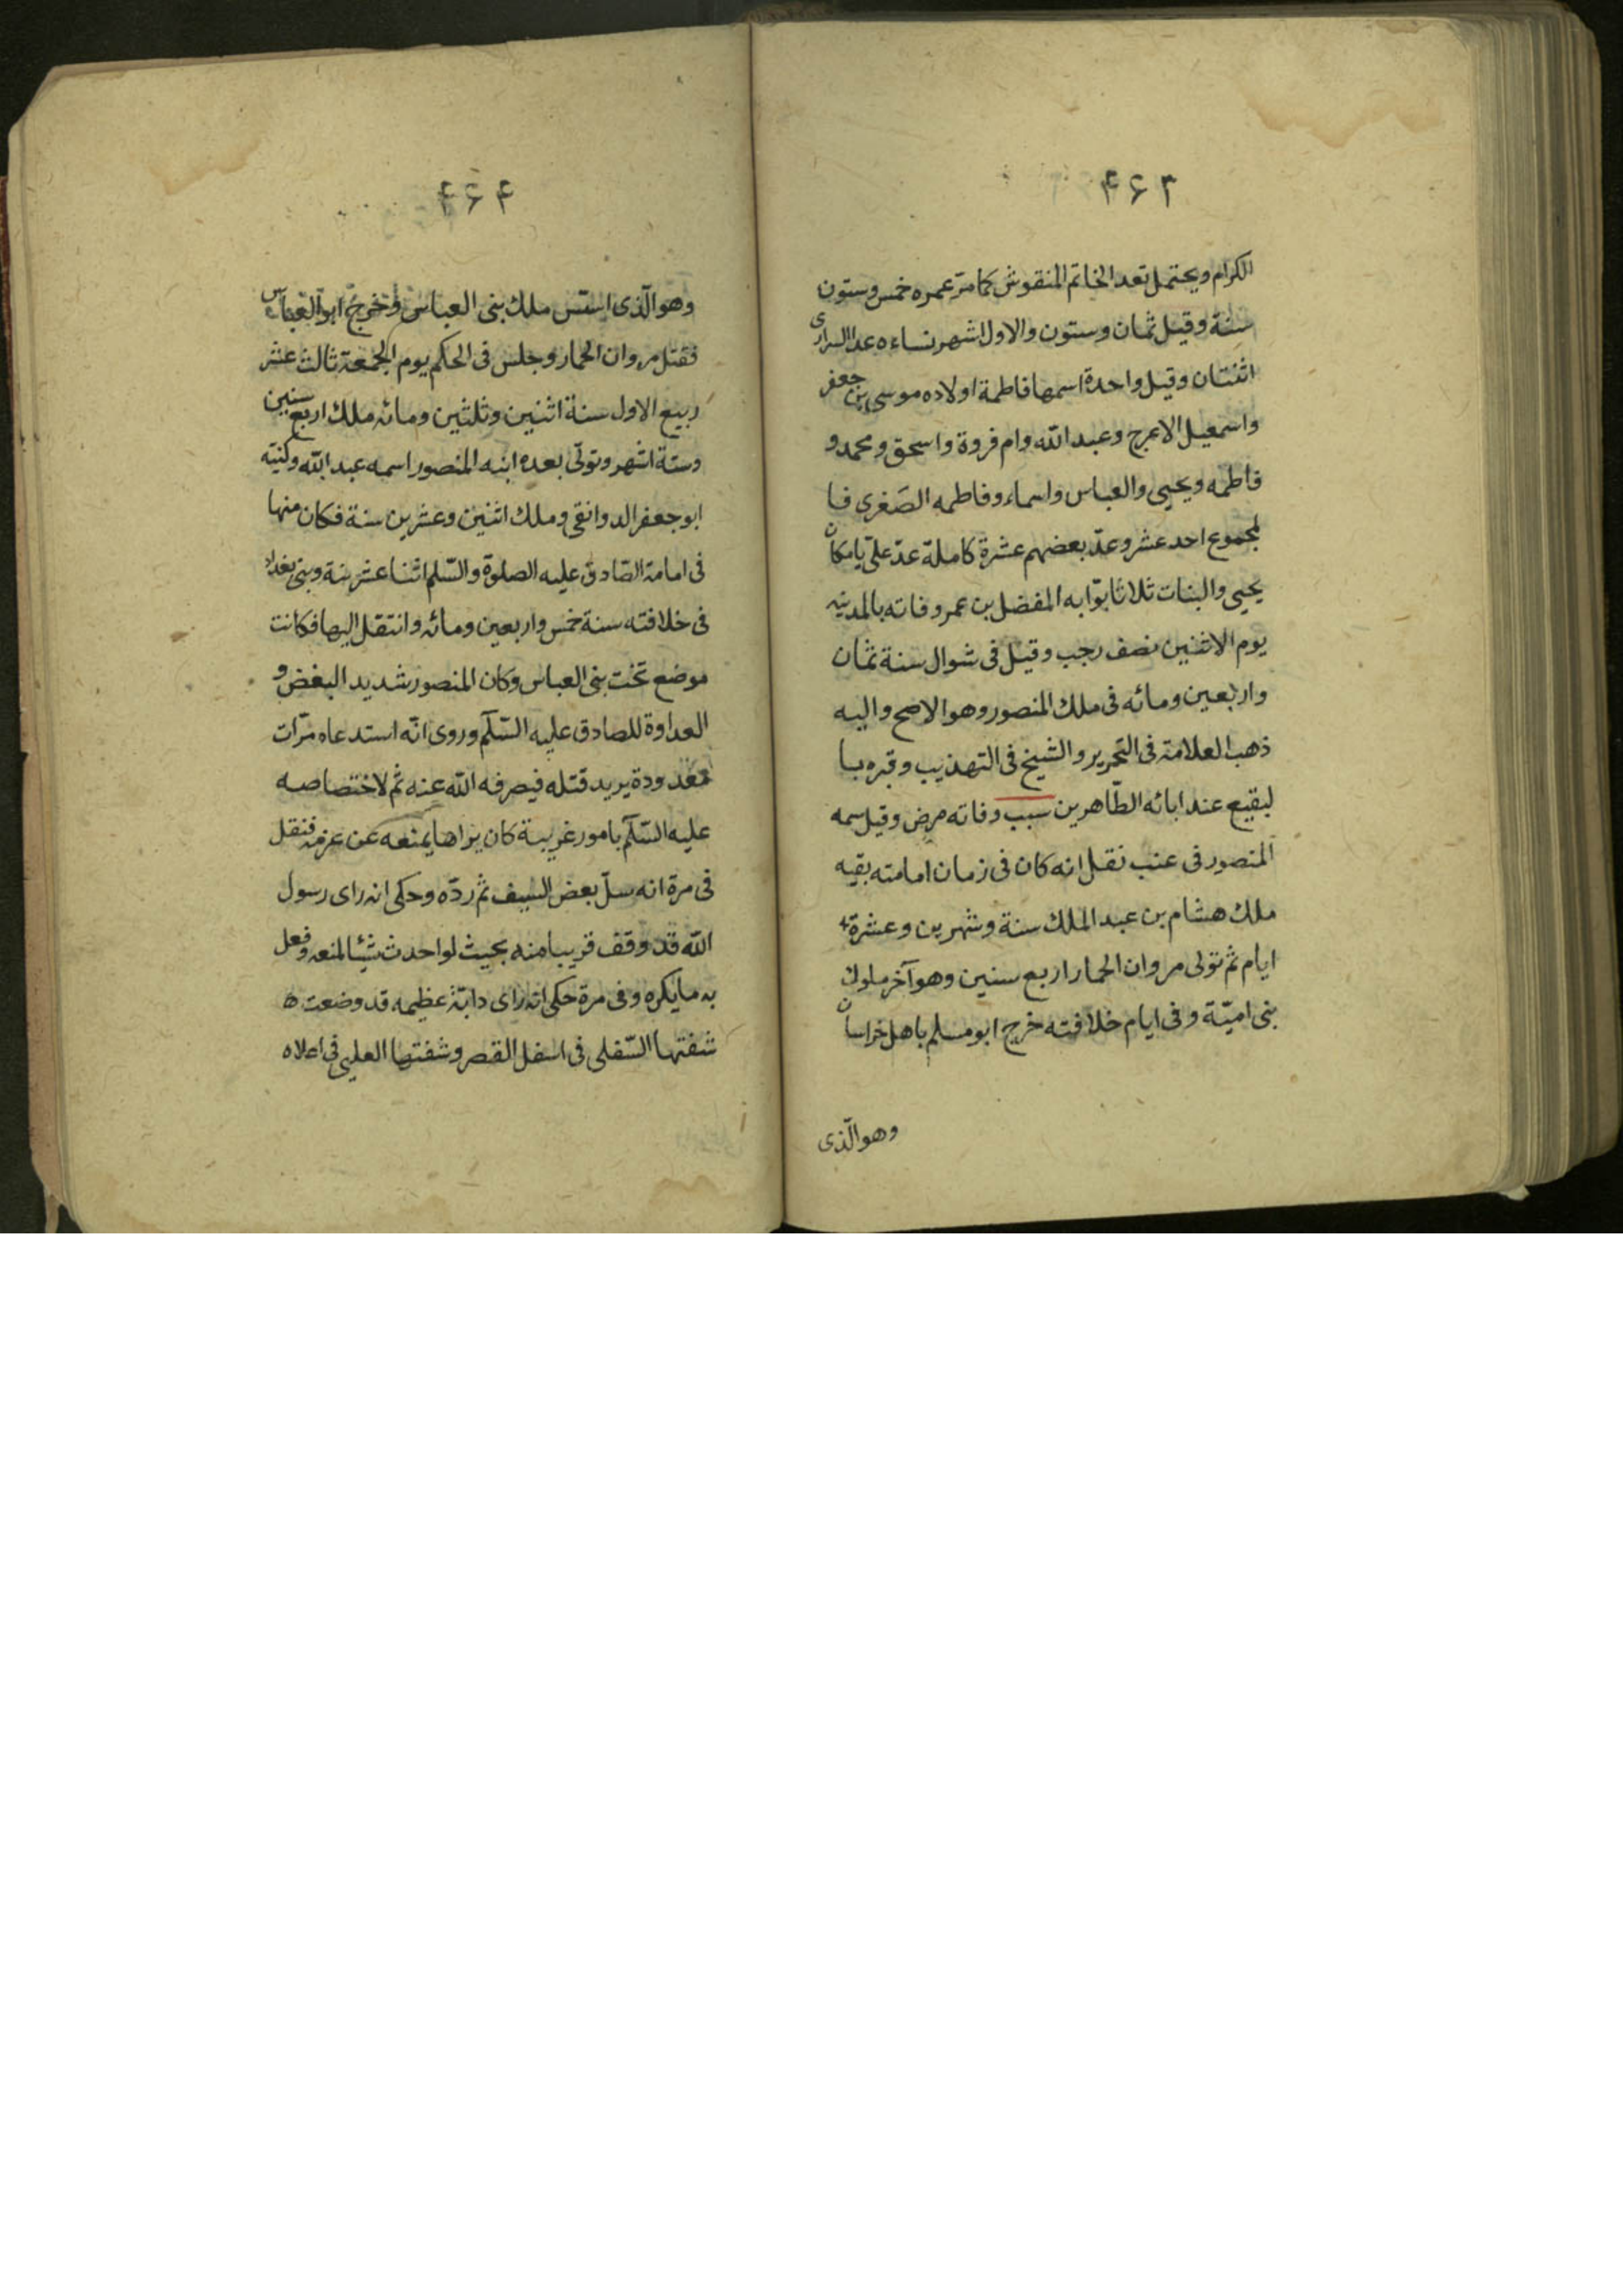 ۴۶۳
الكرام ويحتمل تعد الخاتم المنقوش كما مرّ عمره خمس وستون
سنة وقيل ثمان وستون والاول اشهر نساءه عدا السراری
اثنتان وقيل واحدة اسمها فاطمة اولاده موسى بن جعفر
واسمعيل الاعرج وعبد الله وام فروة واسحق ومحمد و
فاطمه ويحيى والعباس واسماء وفاطمه الصغرى فا
لمجموع احد عشر وعدّ بعضهم عشرة كاملة عدّ عليّا مكان
يحيى والبنات ثلاثا بوّابه المفضل بن عمر وفاته بالمدينه
يوم الاثنين نصف رجب وقيل فى شوال سنة ثمان
واربعين ومائه فى ملك المنصور وهو الاصح واليه
ذهب العلامة فى التحرير والشيخ فى التهذيب وقبره با
لبقيع عند ابائه الطّاهرين سبب وفاته مرض وقيل سمه
المنصور فى عنب نقل انه كان فى زمان امامته بقيه
ملك هشام بن عبد الملك سنة وشهرين وعشرة
ايام ثم تولى مروان الحمار اربع سنين وهو آخر ملوك
بنى اميّة وفى ايام خلافته خرج ابو مسلم باهل خراسان
وهو الّذى
۴۶۴
وهو الّذى اسّس ملك بنى العباس وخرج ابو العباس
فقتل مروان الحمار وجلس فى الحكم يوم الجمعة ثالث عشر
ربيع الاول سنة اثنين وثلثين ومائه ملك اربع سنين
وستة اشهر وتولّى بعده ابنه المنصور اسمه عبد الله وكنيته
ابو جعفر الدوانقى وملك اثنين وعشرين سنة فكان منها
فى امامة الصّادق عليه الصلوة والسّلم اثنا عشر سنة وبنى بغداد
فى خلافته سنة خمس واربعين ومائه وانتقل اليها فكانت
موضع تخت بنى العباس وكان المنصور شديد البغض و
العداوة للصادق عليه السّلم وروى انّه استدعاه مرّات
معدودة يريد قتله فيصرفه الله عنه ثم لاختصاصه
عليه السّلم بامور غريبة كان يراها يمنعه عن عزمه فنقل
فى مرة انه سلّ بعض السيف ثم ردّه وحكى انه راى رسول
الله قد وقف قريبا منه بحيث لو احدث شيئا لمنعه وفعل
به ما يكره وفى مرة حكى انه راى دابّة عظيمه قد وضعت
شفتها السّفلى فى اسفل القصر وشفتها العليى فى اعلاه